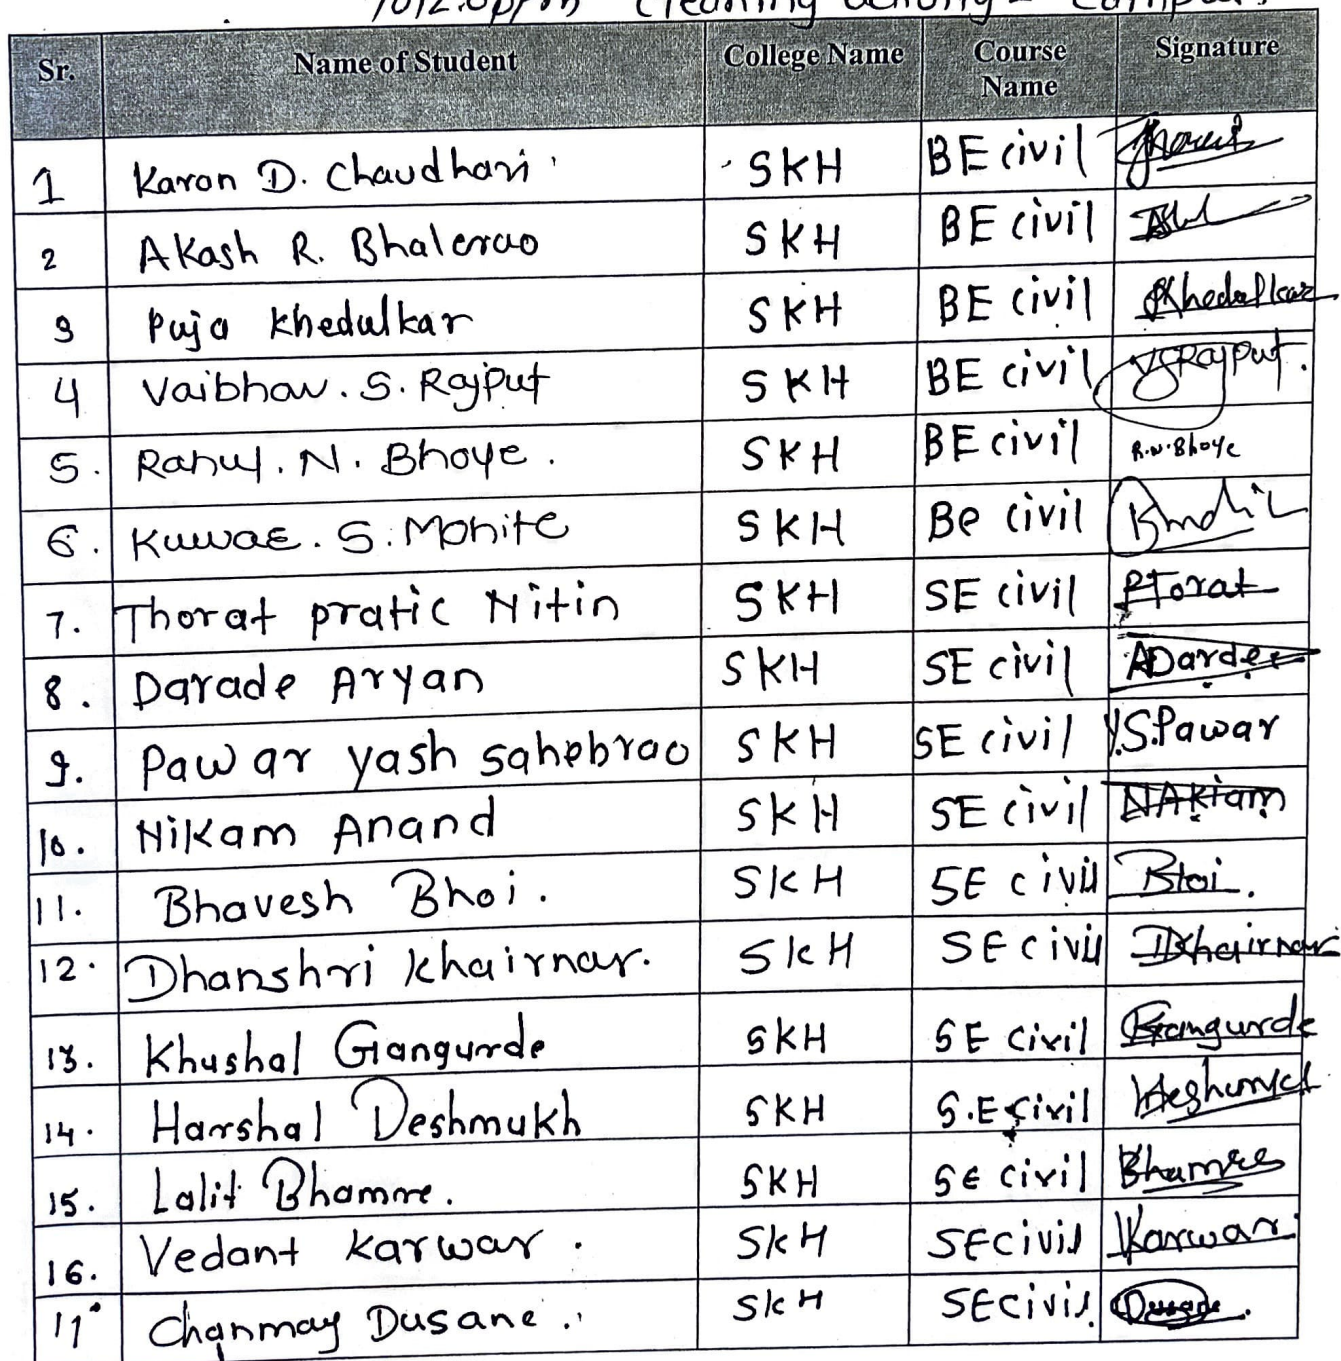 Cleaning activity - Campus.
Sr. Name of Student College Name Course Name Signature
1 Karon D. Chaudhari SKH BE civil
2 Akash R. Bhalerao SKH BE civil
3 Puja Khedulkar SKH BE civil Khedalkar
4 Vaibhav. S. Rajput SKH BE civil VSRajput.
5. Rahul. N. Bhoye. SKH BE civil R.N.Bhoye
6. S. Mohite SKH Be civil
7. Thorat pratic Nitin SKH SE civil PTorat
8. Darade Aryan SKH SE civil ADardee
9. Pawar yash sahebrao SKH SE civil Y.S.Pawar
10. Nikam Anand SKH SE civil NAKiam
11. Bhavesh Bhoi. SKH SE civil Bhoi.
12. Dhanshri Khairnar. SKH SE civil DKhairnar
13. Khushal Gangurde SKH SE civil Gangurde
14. Harshal Deshmukh SKH S.E civil
15. Lalit Bhamre. SKH SE civil Bhamre
16. Vedant Karwar. SKH SE civil Karwar
17. Chanmay Dusane. SKH SE civil.